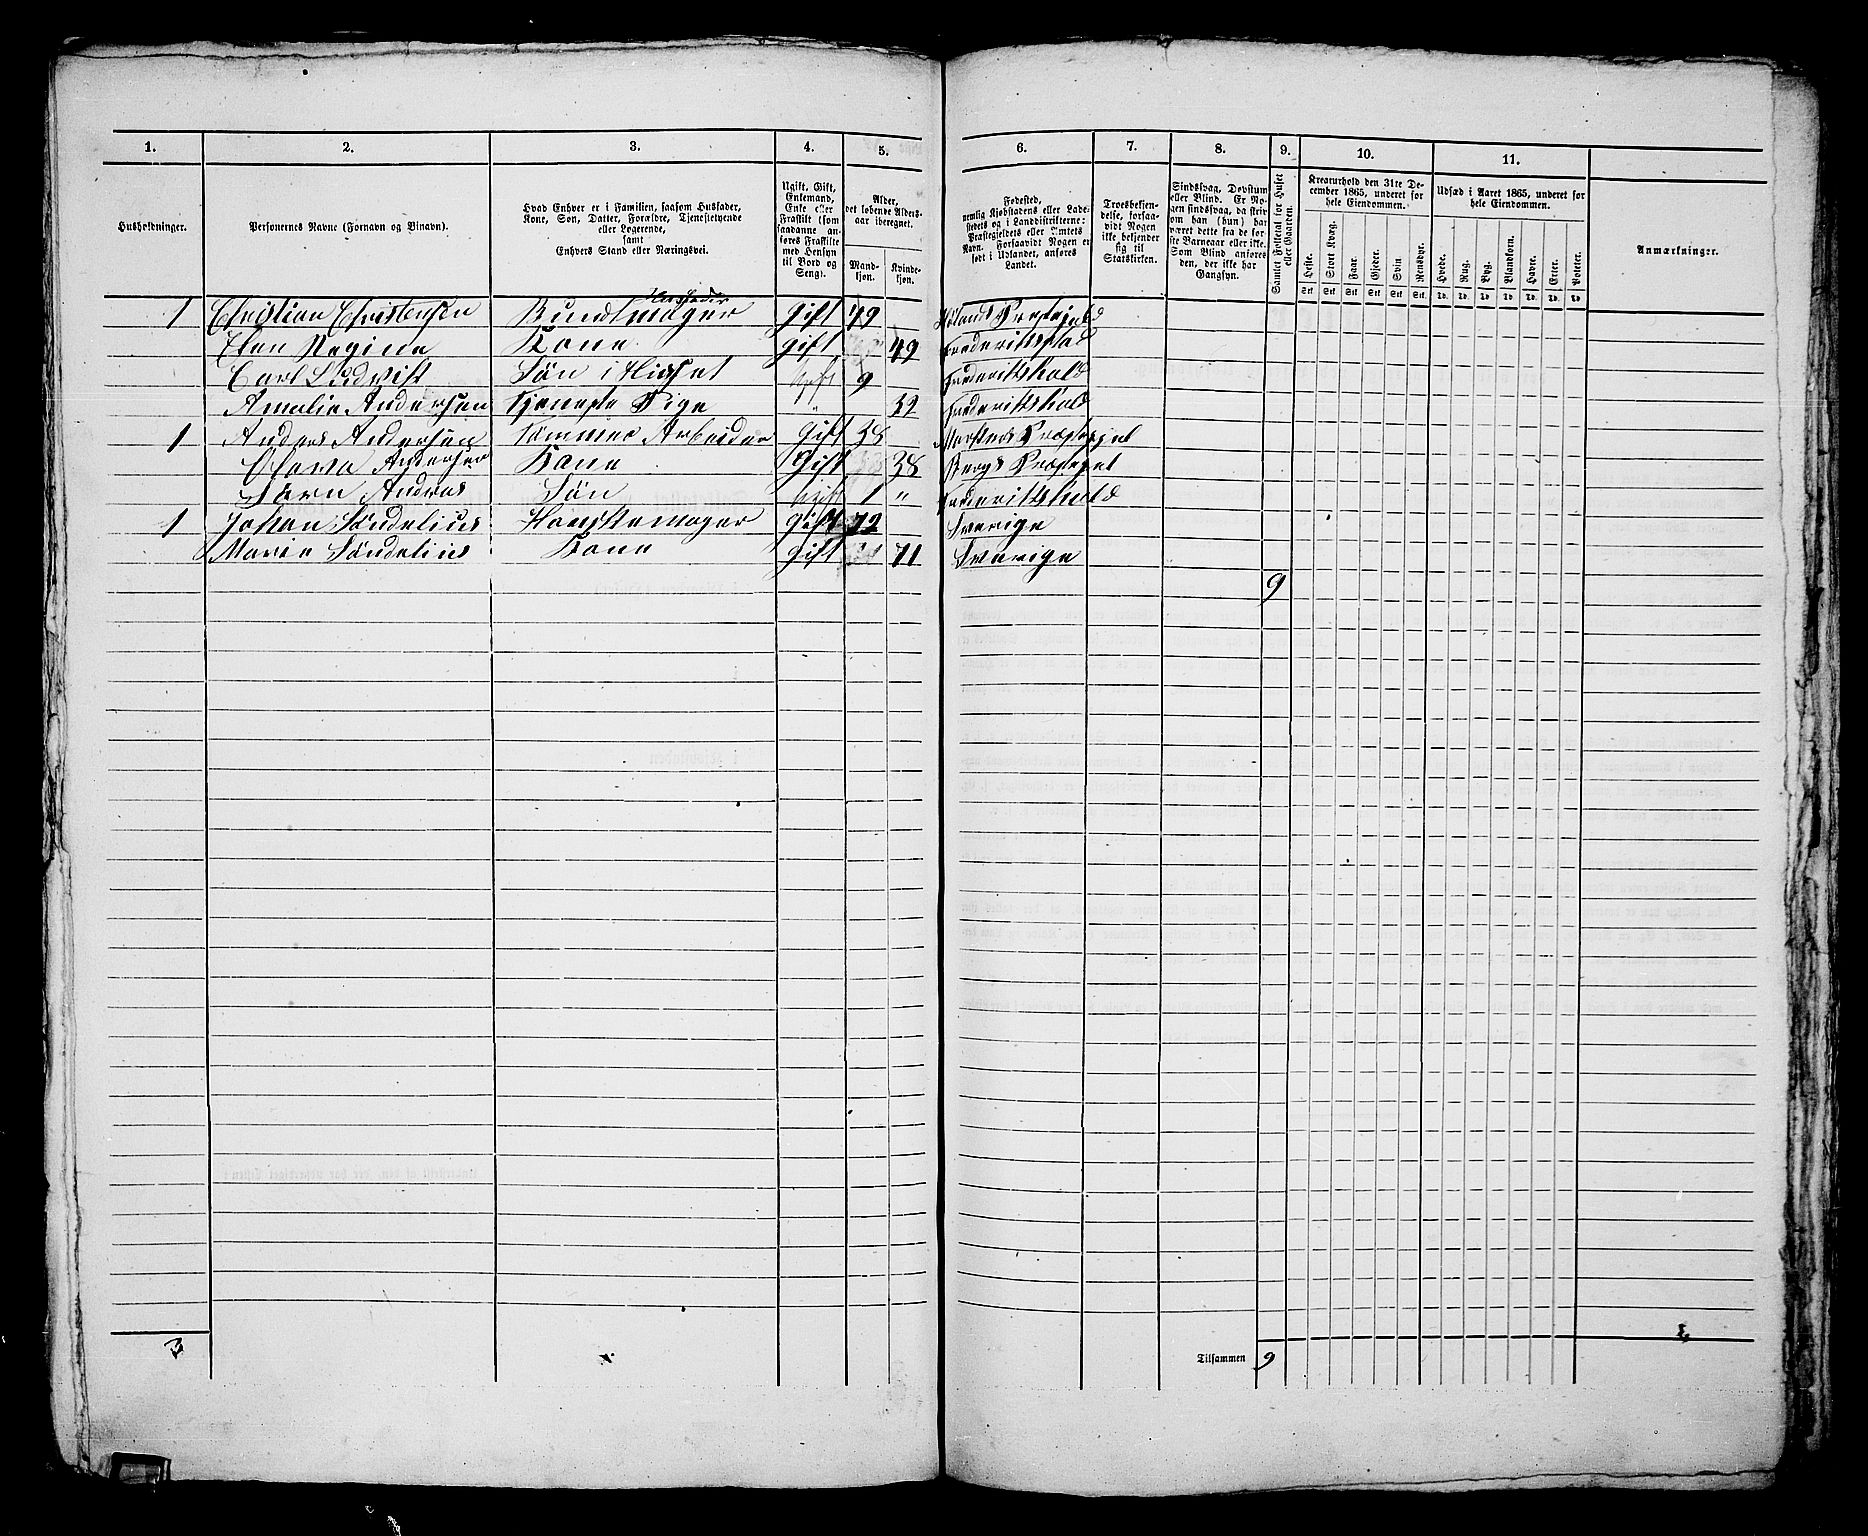 1. 2. 3. 4. 5. 6. 7. 8. 9. 10. 11.
Husholdninger.
Personernes Navne (Fornavn og Binavn).
Hvad Enhver er i Familien, saasom Husfader,
Kone, Søn, Datter, Forældre, Tjenestetyende
eller Logerende,
samt
Enhvers Stand eller Næringsvei.
Ugift, Gift,
Enkemand,
Enke eller
Fraskilt (som
saadanne an-
føres Fraskilte
med Hensyn
til Bord og
Seng).
Alder,
det løbende Alders-
aar iberegnet.
Mand-
kjøn.
Kvinde-
kjøn.
Fødested,
nemlig Kjøbstadens eller Lade-
stedets og i Landdistrikterne:
Præstegjeldets eller Amtets
Navn. Forsaavidt Nogen er
født i Udlandet, anføres
Landet.
Troesbekjen-
delse, forsaa-
vidt Nogen
ikke bekjender
sig til
Statskirken.
Sindssvag, Døvstum
eller Blind. Er No-
gen sindssvag, da skriv
om han (hun) har
været dette fra de før-
ste Barneaar eller ikke.
Som Blind anføres
den, der ikke har
Gangsyn.
Samlet Folketal for Huset
eller Gaarden.
Kreaturhold den 31te De-
cember 1865, underet for
hele Eiendommen.
Heste. Stort Kvæg. Faar. Gjeder. Svin Rensdyr.
Sk. Sk. Sk. Sk. Sk. Sk.
Udsæd i Aaret 1865, underet for
hele Eiendommen.
Hvede. Rug. Byg. Blandkorn. Havre. Erter. Poteter.
Td. Td. Td. Td. Td. Td. Td.
Anmærkninger.
Husfader
1 Christian Christensen Buntmager Gift 49 Prestejeld
Elen Regine Kone Gift 49 Frederikstad
Carl Ludvist Søn i Huset Ugift 9 Frederikshald
Amalie Andersen Tjeneste Pige " 32 Frederikshald
1 Anders Andersen Tømmer Arbeider Gift 38 Præstegjel
Andersen Kone Gift 38 Bergs Præstegjel
Søren Andreas Søn Ugift 1 " Frederikshald
1 Johan Søndelius Hanskemager Gift 72 Sverige
Marie Søndelius Kone Gift 71 Sverige
9
3
Tilsammen 9